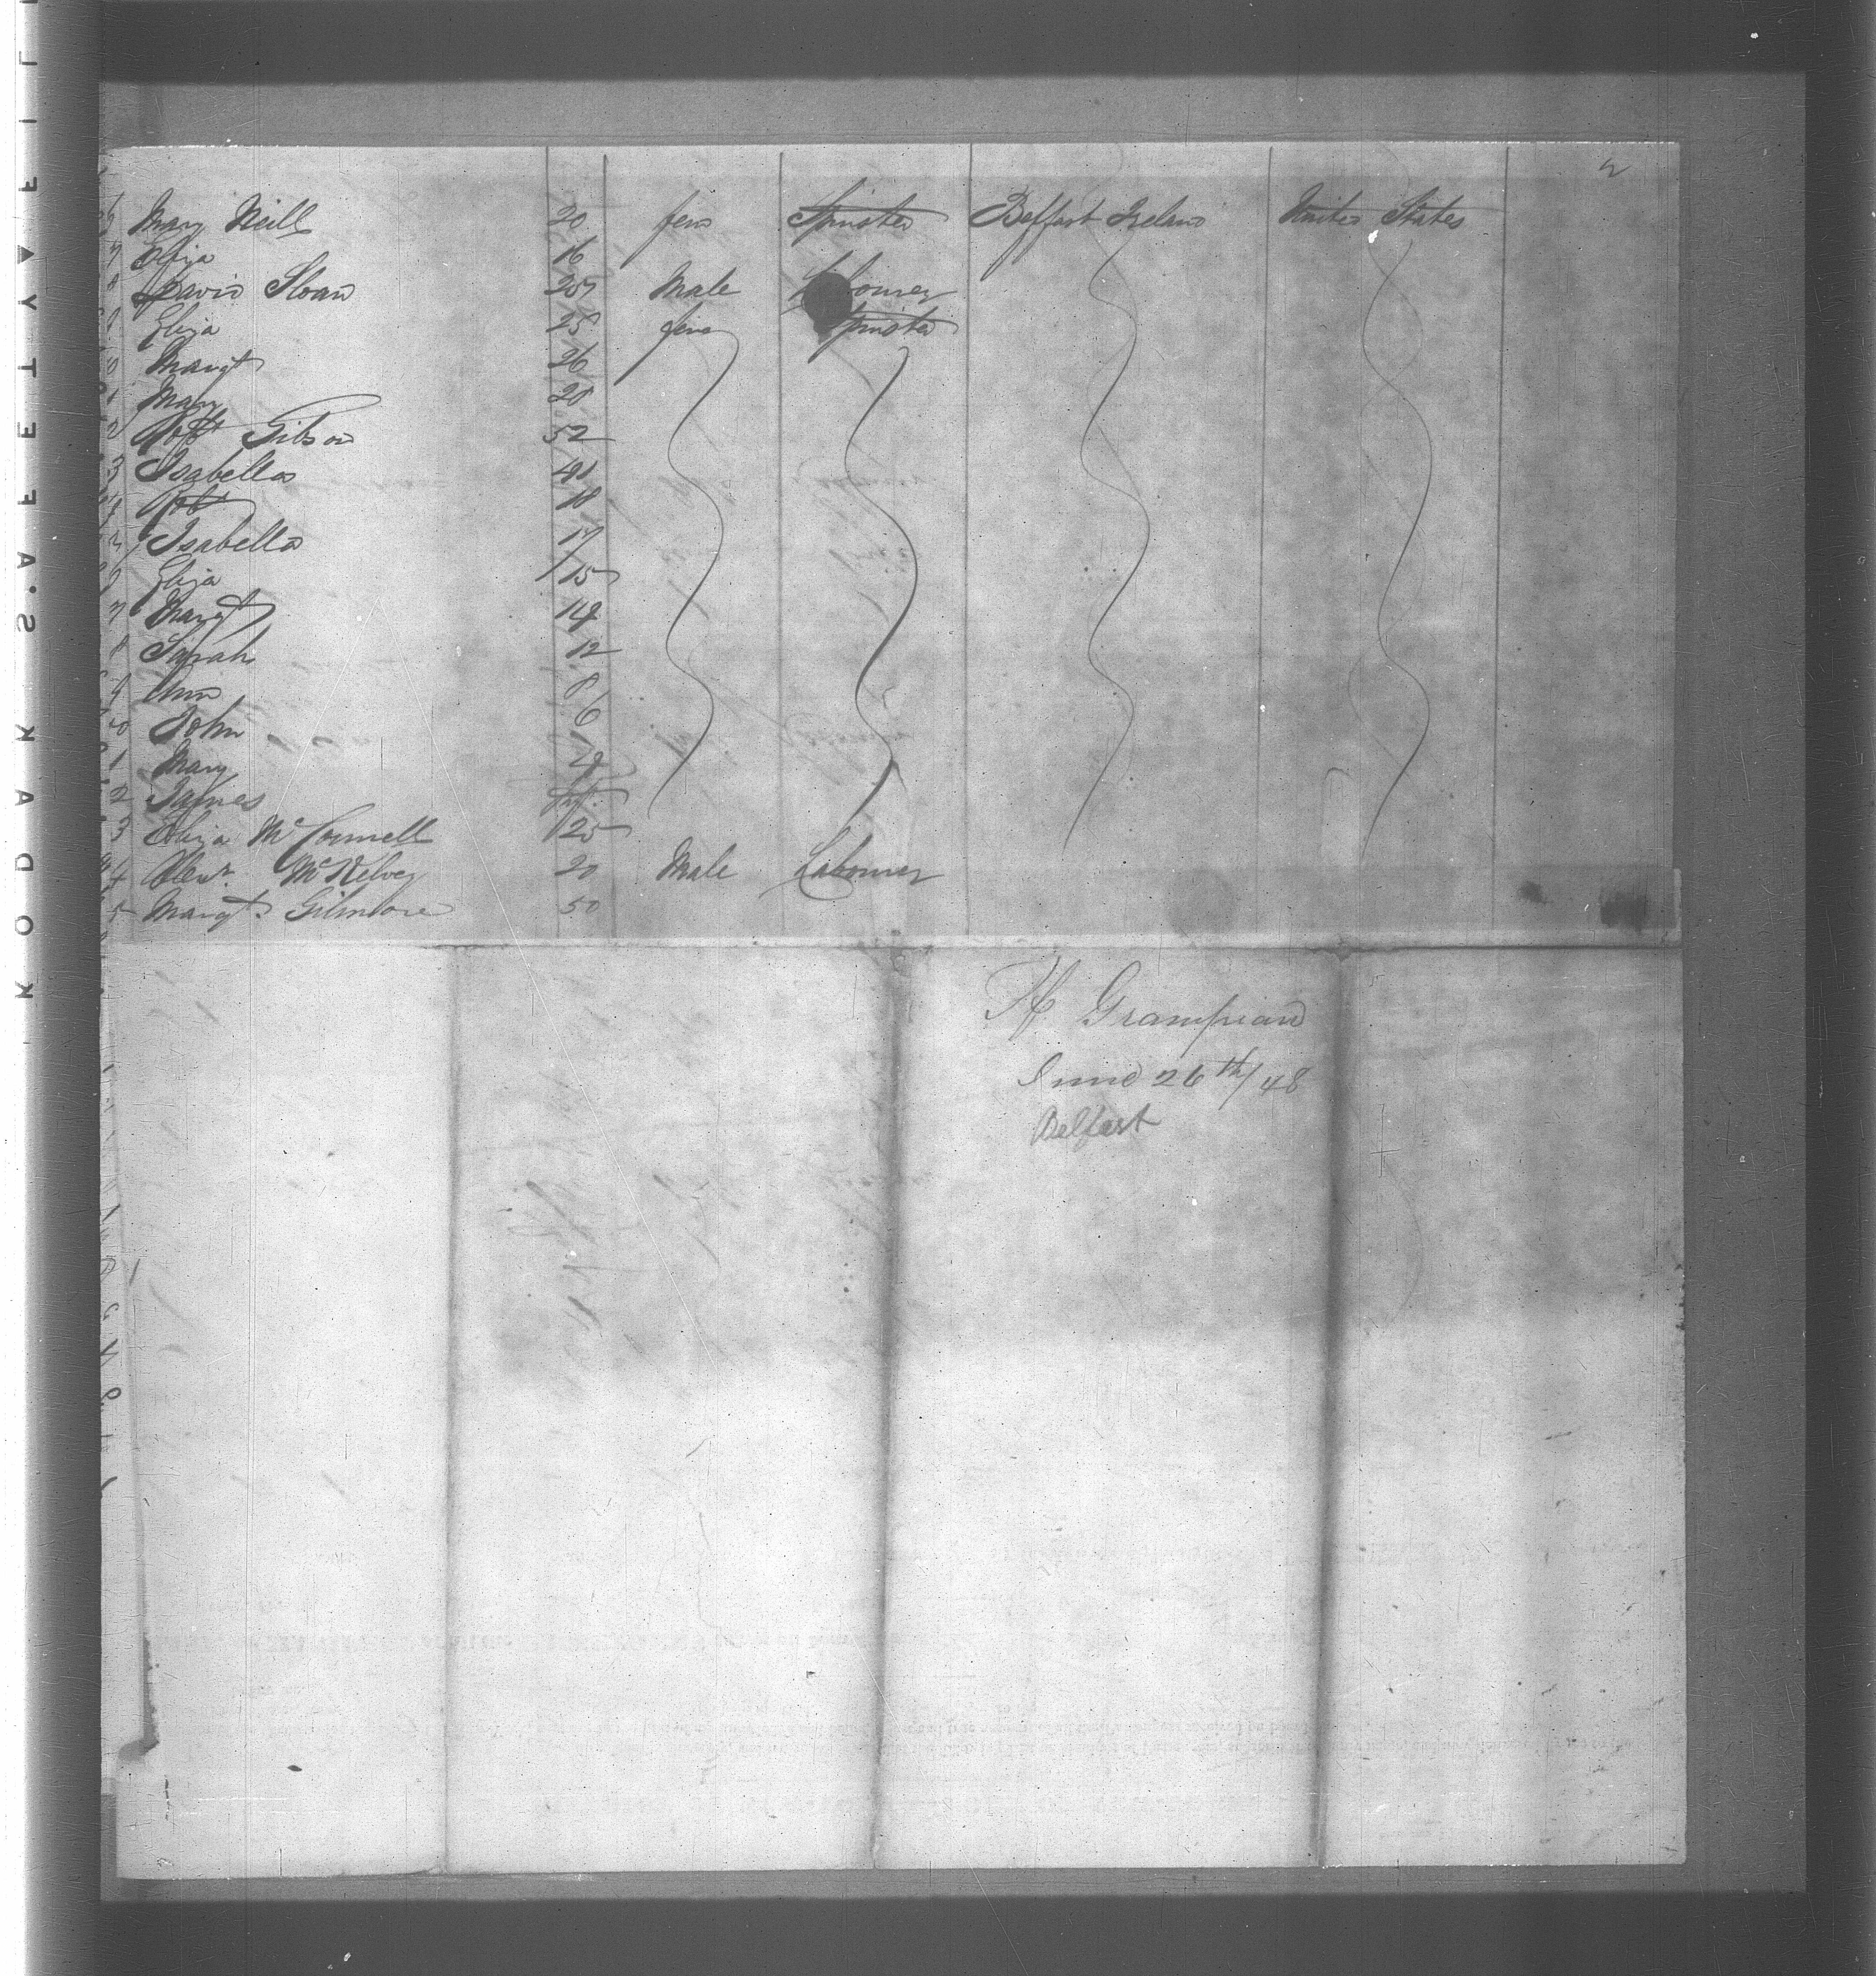 2
6 Mary Neill 20 fem Spinster Belfast Ireland United States
7 Eliza 16
8 David Sloan 20 Male Labourer
9 Eliza 25 fem Spinster
0 Margt 26
1 Mary 20
2 Robt Gibson 52
3 Isabella 41
Robt 18
Isabella 17
Eliza 15
7 Margt 14
8 Sarah 12
9 Ann 8
0 John 6
1 Mary 4
2 James Inft.
3 Eliza McConnell 25
4 Alexr. McKelvey 20 Male Labourer
5 Margt. Gilmore 50
Grampian
June 26th/48
Belfast
KODAK·SAFETY FIL